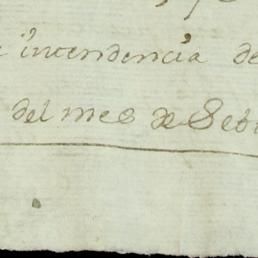 e intendencia de
del mes de Seti